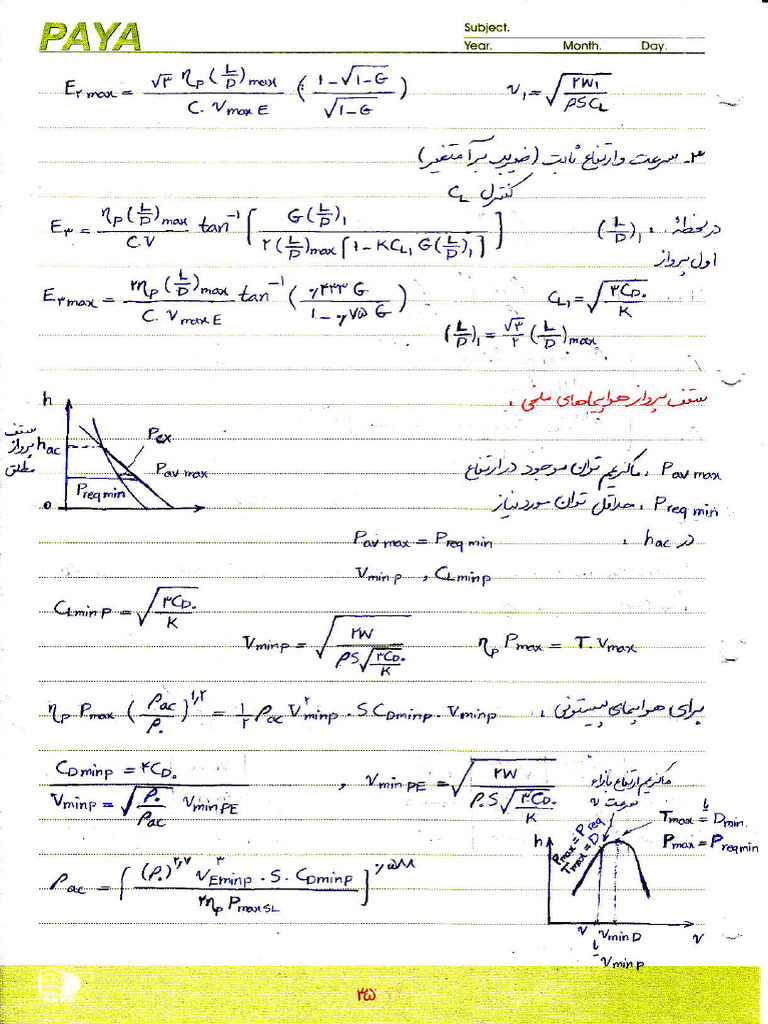 PAYA
Subject.
Year. Month. Day.
E۲ max = √۳ ηp (L/D)max / C. Vmax E ( 1-√1-G / √1-G ) v1 = √ ۲W1 / ρSCL
۳- سرعت و ارتفاع ثابت (ضریب برآ متغیر)
کنترل CL
E۳ = ηp (L/D)max / C.V tan⁻¹ [ G(L/D)1 / ۲(L/D)max [1-KCL1 G(L/D)1] ] (L/D)1 : در لحظهٔ
اول پرواز
E۳ max = ۲ηp (L/D)max / C. Vmax E tan⁻¹ ( ۰٫۴۳۳ G / 1-۰٫۷۵ G ) CL1 = √ ۳CD۰ / K
(L/D)1 = √۳/۲ (L/D)max
سقف پرواز هواپیماهای ملخی :
h
سقف پرواز مطلق hac
Pex
Pav max
Preq min
۰
Pav max : ماکزیمم توان موجود در ارتفاع
Preq min : حداقل توان مورد نیاز
در hac : Pav max = Preq min
Vmin P , CL min P
CL min P = √ ۳CD۰ / K
Vmin P = √ ۲W / ρS√ ۳CD۰ / K ηp Pmax = T. Vmax
برای هواپیمای پیستونی : ηp Pmax (ρac / ρ۰)^۱٫۲ = 1/۲ ρac V²min P . S CD min P . Vmin P
CD min P = ۴CD۰
Vmin P = √ ρ۰ / ρac Vmin PE , Vmin PE = √ ۲W / ρ۰S√ ۳CD۰ / K
ماکزیمم ارتفاع بازاء
سرعت v
Tmax = Dmin
یا
Pmax = Preq min
h
Pmax = Preq
Tmax = D
ρac = [ (ρ۰)^۲٫۷ V³E min P . S . CD min P / ۲ηp Pmax SL ]
v Vmin D v
یا
Vmin P
۳۵